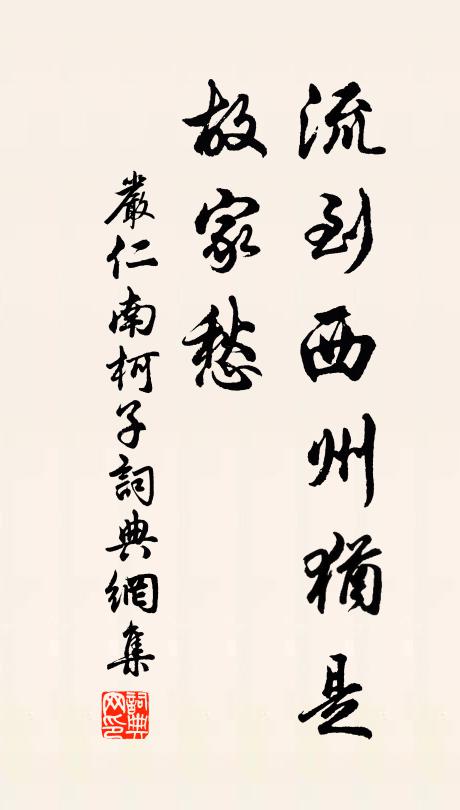 流到西州猶是
故家愁
嚴仁南柯子詞典網集
詞典
网印